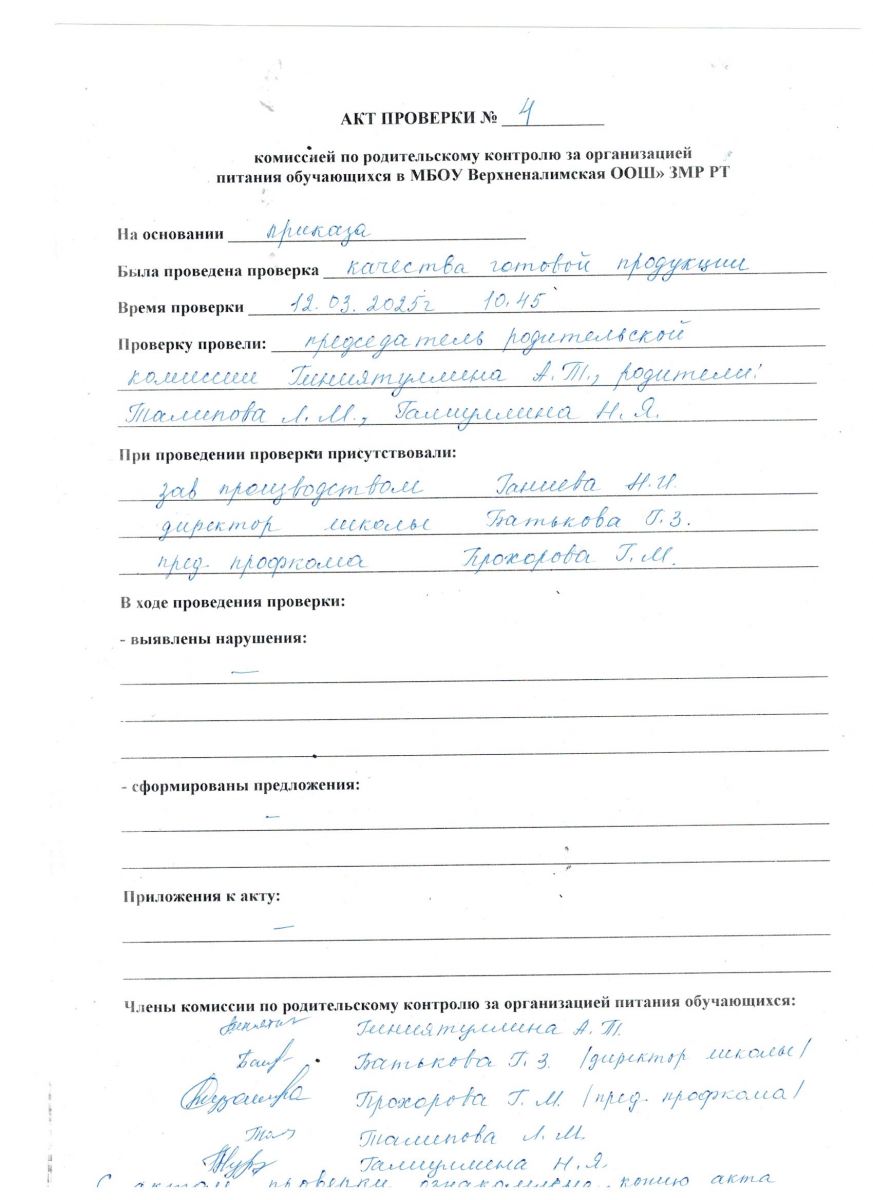 АКТ ПРОВЕРКИ № 4
комиссией по родительскому контролю за организацией
питания обучающихся в МБОУ Верхненалимская ООШ» ЗМР РТ
На основании приказа
Была проведена проверка качества готовой продукции
Время проверки 12.03.2025г 10.45
Проверку провели: председатель родительской
комиссии Гиниятуллина А.Т., родители:
Талипова Л.М., Галиуллина Н.Я.
При проведении проверки присутствовали:
зав производством Ганиева Н.И.
директор школы Батькова Г.З.
пред. профкома Прохорова Г.М.
В ходе проведения проверки:
- выявлены нарушения:
—
- сформированы предложения:
—
Приложения к акту:
—
Члены комиссии по родительскому контролю за организацией питания обучающихся:
Гиниятуллина А.Т.
Батькова Г.З. /директор школы/
Прохорова Г.М. /пред. профкома/
Талипова Л.М.
Галиуллина Н.Я.
С актом проверки ознакомлена, копию акта